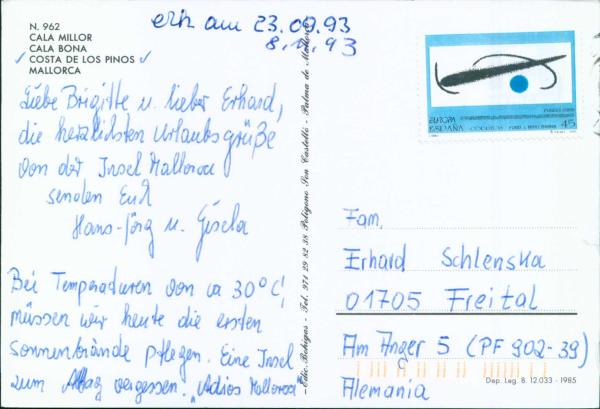 erh am 23.09.93
8.11.93
N. 962
CALA MILLOR
CALA BONA
✓ COSTA DE LOS PINOS ✓
MALLORCA
Liebe Brigitte u. lieber Erhard,
die herzlichsten Urlaubsgrüße
von der Insel Mallorca
senden Euch
Hans-Jörg u. Gisela
Bei Temperaturen von ca 30°C!
müssen wir heute die ersten
Sonnenbrände pflegen. Eine Insel
zum Alltag vergessen. "Adios Mallorca"
Edic. Bohigas - Tel. 971 29 82 38 Polígono Son Castelló - Palma de Mallorca
EUROPA
ESPAÑA CORREOS
45
Fam.
Erhard Schlenska
01705 Freital
Am Anger 5 (PF 902-39)
Alemania
Dep. Leg. B. 12.033 - 1985